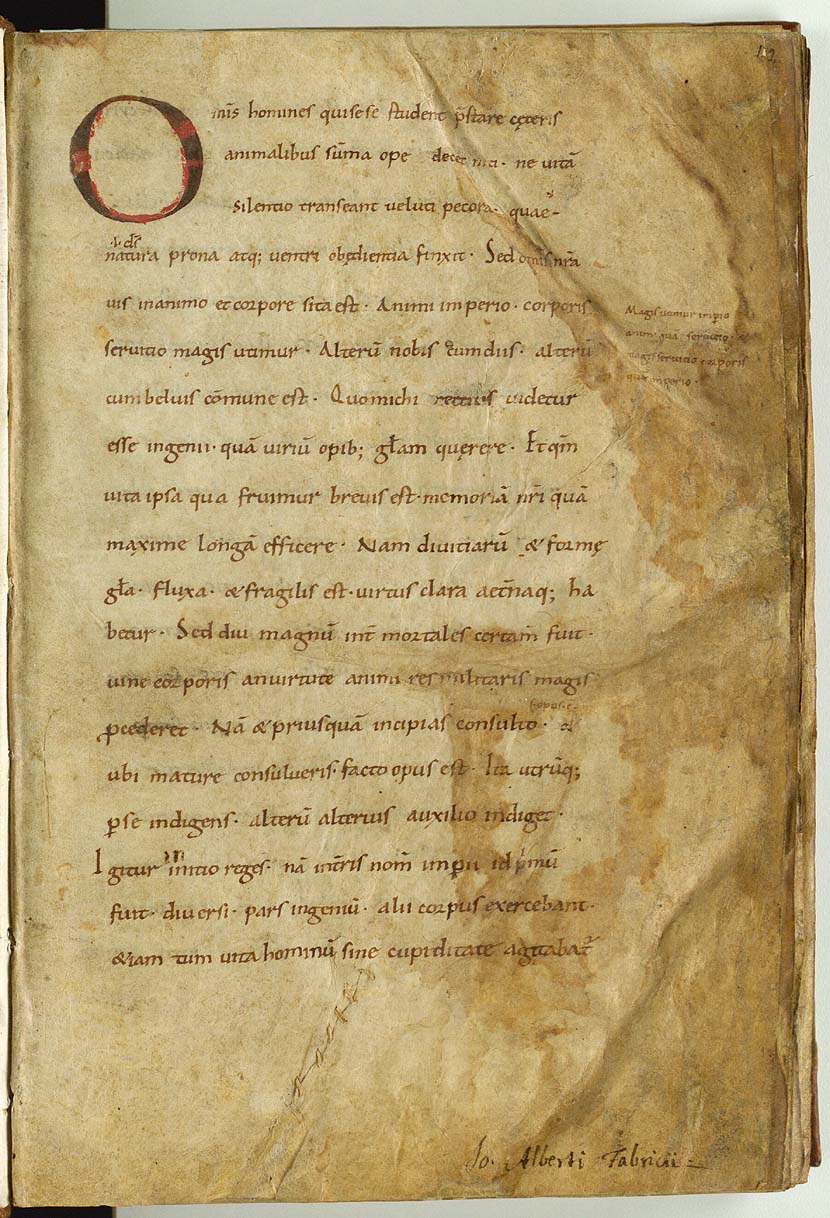 Omīs homines quisese student p̄stare cęteris
animalibus sūma ope decet niti · ne uitā
silentio transeant ueluti pecora · quae
natura prona atq; uentri obędientia finxit · Sed omīs nr̄a
uis inanimo et corpore sita est · Animi imperio · corporis
seruitio magis utimur · Alterū nobis cum diis · alterū
cum beluis cōmune est · Quo michi rectius uidetur
esse ingenii · quā uiriū opib; gl̄am quęrere · Et qm̄
uita ipsa qua fruimur breuis est · memoriā nr̄i quā
maxime longā efficere · Nam diuitiarū & formę
gl̄a · fluxa · & fragilis est · uirtus clara aet̄naq; ha
betur · Sed diu magnū int̄ mortales certam̄ fuit ·
uine corporis anuirtute animi res militaris magis
ꝓcederet · Nā & priusquā incipias consulto · &
opus · e ·
ubi mature consulueris · facto opus est · Ita utrūq;
ꝑ se indigens · alterū alterius auxilio indiget ·
Igitur initio reges · nā int̄ris nom̄ imꝑii id p̄mū
fuit · diuersi · pars ingeniū · alii corpus exercebant ·
&iam tum uita hominū sine cupiditate agitabat᷑
Magis utimur impio
animi quā seruitio · &
magis seruitio corporis
quā imperio ·
Jo. Alberti Fabricii